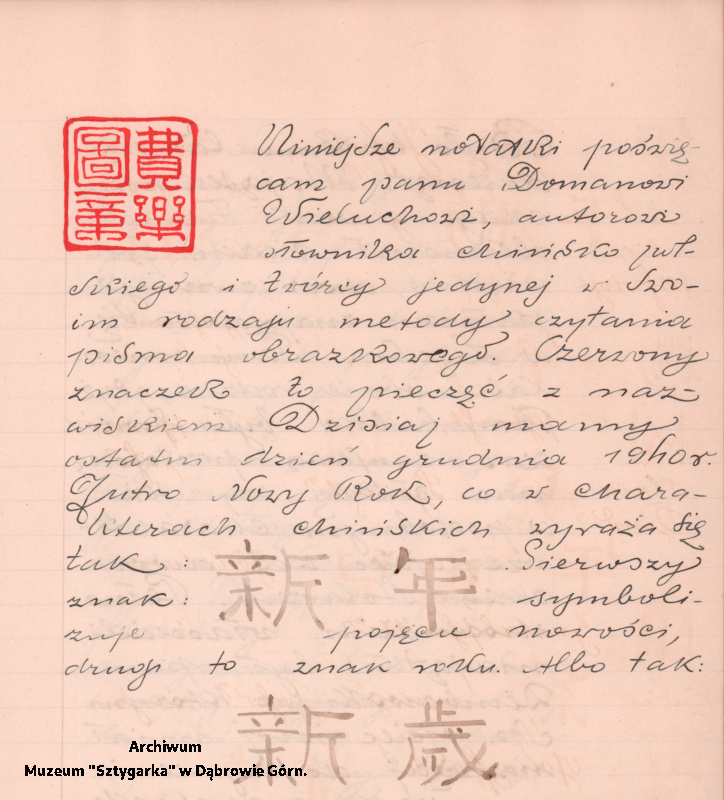 費樂
圖章
Niniejsze notatki poświę-
cam panu Domanowi
Wieluchowi, autorowi
słownika chińsko pol-
skiego i twórcy jedynej w swo-
im rodzaju metody czytania
pisma obrazkowego. Czerwony
znaczek to pieczęć z naz-
wiskiem Dzisiaj mamy
ostatni dzień grudnia 1960r.
Jutro Nowy Rok, co w chara-
kterach chińskich wyraża się
tak: 新年. Pierwszy
znak: symboli-
zuje pojęcie nowości,
drugi to znak roku. Albo tak:
新歲
Archiwum
Muzeum "Sztygarka" w Dąbrowie Górn.